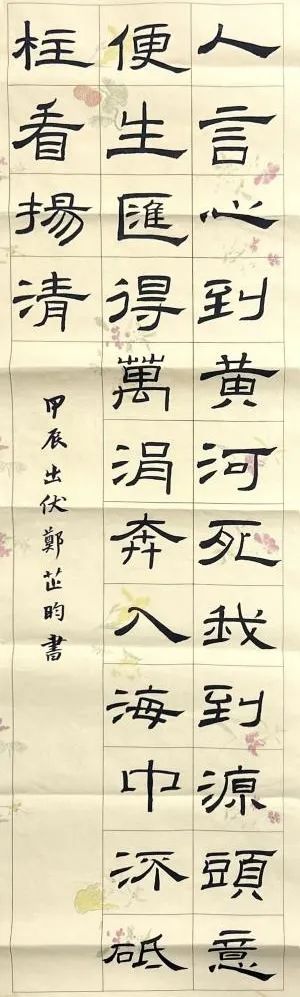 人言心到黄河死我到源頭意
便生匯得萬涓奔入海中流砥
柱看揚清
甲辰出伏鄭芷昀書